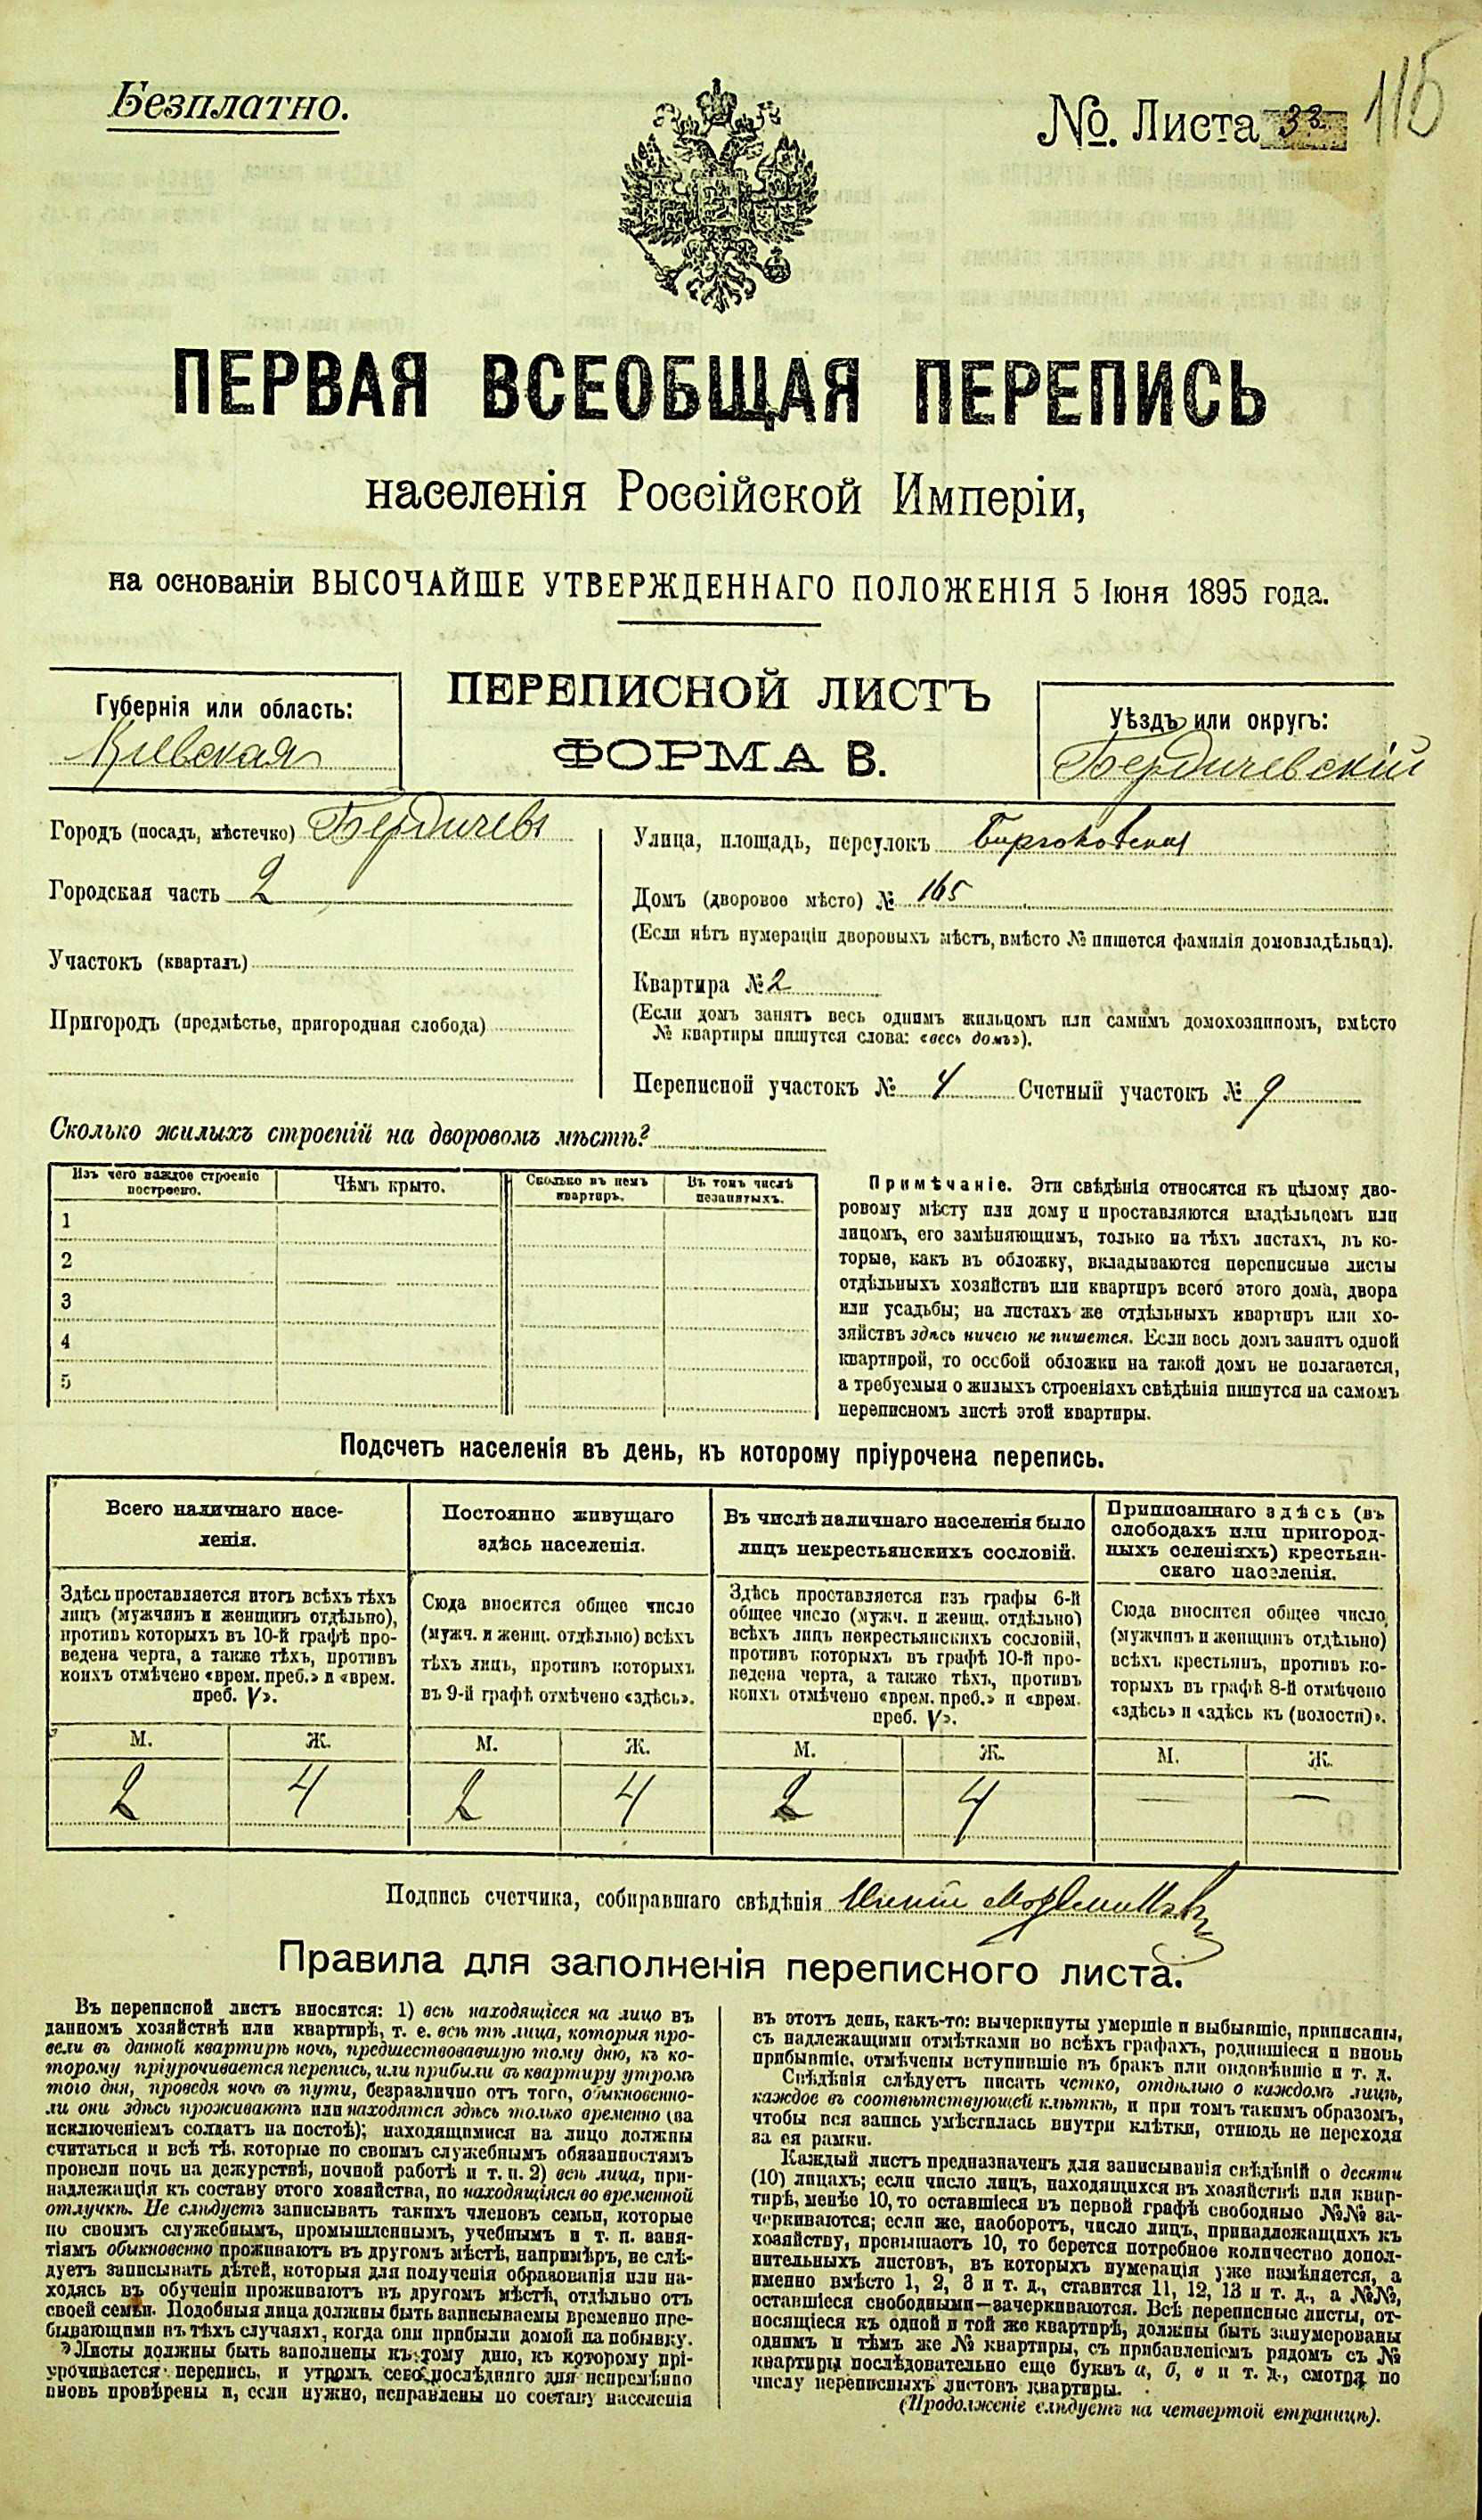 Безплатно.
№. Листа 33
115
ПЕРВАЯ ВСЕОБЩАЯ ПЕРЕПИСЬ
населенія Россійской Имперіи,
на основаніи ВЫСОЧАЙШЕ УТВЕРЖДЕННАГО ПОЛОЖЕНІЯ 5 Іюня 1895 года.
ПЕРЕПИСНОЙ ЛИСТЪ
ФОРМА В.
Губернія или область:
Кіевская
Уѣздъ или округъ:
Бердичевскій
Городъ (посадъ, мѣстечко) Бердичевъ
Городская часть 2
Участокъ (кварталъ)
Пригородъ (предмѣстье, пригородная слобода)
Улица, площадь, переулокъ
Домъ (дворовое мѣсто) № 165
(Если нѣтъ нумераціи дворовыхъ мѣстъ, вмѣсто № пишется фамилія домовладѣльца).
Квартира № 2
(Если домъ занятъ весь однимъ жильцомъ или самимъ домохозяиномъ, вмѣсто
№ квартиры пишутся слова: «весь домъ»).
Переписной участокъ № 4 Счетный участокъ № 9
Сколько жилыхъ строеній на дворовомъ мѣстѣ?
Изъ чего каждое строеніе построено.
Чѣмъ крыто.
Сколько въ немъ квартиръ.
Въ томъ числѣ незанятыхъ.
1
2
3
4
5
Примѣчаніе. Эти свѣдѣнія относятся къ цѣлому дво-
ровому мѣсту или дому и проставляются владѣльцемъ или
лицомъ, его замѣняющимъ, только на тѣхъ листахъ, въ ко-
торые, какъ въ обложку, вкладываются переписные листы
отдѣльныхъ хозяйствъ или квартиръ всего этого дома, двора
или усадьбы; на листахъ же отдѣльныхъ квартиръ или хо-
зяйствъ здѣсь ничего не пишется. Если весь домъ занятъ одной
квартирой, то особой обложки на такой домъ не полагается,
а требуемыя о жилыхъ строеніяхъ свѣдѣнія пишутся на самомъ
переписномъ листѣ этой квартиры.
Подсчетъ населенія въ день, къ которому пріурочена перепись.
Всего наличнаго насе-
ленія.
Постоянно живущаго
здѣсь населенія.
Въ числѣ наличнаго населенія было
лицъ некрестьянскихъ сословій.
Приписаннаго здѣсь (въ
слободахъ или пригород-
ныхъ селеніяхъ) крестьян-
скаго населенія.
Здѣсь проставляется итогъ всѣхъ тѣхъ
лицъ (мужчинъ и женщинъ отдѣльно),
противъ которыхъ въ 10-й графѣ про-
ведена черта, а также тѣхъ, противъ
коихъ отмѣчено «врем. преб.» и «врем.
преб. V».
Сюда вносится общее число
(мужч. и женщ. отдѣльно) всѣхъ
тѣхъ лицъ, противъ которыхъ
въ 9-й графѣ отмѣчено «здѣсь».
Здѣсь проставляется изъ графы 6-й
общее число (мужч. и женщ. отдѣльно)
всѣхъ лицъ некрестьянскихъ сословій,
противъ которыхъ въ графѣ 10-й про-
ведена черта, а также тѣхъ, противъ
коихъ отмѣчено «врем. преб.» и «врем.
преб. V».
Сюда вносится общее число
(мужчинъ и женщинъ отдѣльно)
всѣхъ крестьянъ, противъ ко-
торыхъ въ графѣ 8-й отмѣчено
«здѣсь» и «здѣсь къ (волости)».
М. Ж. М. Ж. М. Ж. М. Ж.
2 4 2 4 2 4 — —
Подпись счетчика, собиравшаго свѣдѣнія
Правила для заполненія переписного листа.
Въ переписной листъ вносятся: 1) всѣ находящіеся на лицо въ
данномъ хозяйствѣ или квартирѣ, т. е. всѣ тѣ лица, которыя про-
вели въ данной квартирѣ ночь, предшествовавшую тому дню, къ ко-
торому пріурочивается перепись, или прибыли въ квартиру утромъ
того дня, проведя ночь въ пути, безразлично отъ того, обыкновенно-
ли они здѣсь проживаютъ или находятся здѣсь только временно (за
исключеніемъ солдатъ на постоѣ); находящимися на лицо должны
считаться и всѣ тѣ, которые по своимъ служебнымъ обязанностямъ
провели ночь на дежурствѣ, ночной работѣ и т. п. 2) всѣ лица, при-
надлежащія къ составу этого хозяйства, но находящіяся во временной
отлучкѣ. Не слѣдуетъ записывать такихъ членовъ семьи, которые
по своимъ служебнымъ, промышленнымъ, учебнымъ и т. п. заня-
тіямъ обыкновенно проживаютъ въ другомъ мѣстѣ, напримѣръ, не слѣ-
дуетъ записывать дѣтей, которыя для полученія образованія или на-
ходясь въ обученіи проживаютъ въ другомъ мѣстѣ, отдѣльно отъ
своей семьи. Подобныя лица должны быть записываемы временно пре-
бывающими въ тѣхъ случаяхъ, когда они прибыли домой на побывку.
Листы должны быть заполнены къ тому дню, къ которому прі-
урочивается перепись, и утромъ сего послѣдняго дня непремѣнно
вновь провѣрены и, если нужно, исправлены по составу населенія
въ этотъ день, какъ-то: вычеркнуты умершіе и выбывшіе, приписаны,
съ надлежащими отмѣтками во всѣхъ графахъ, родившіеся и вновь
прибывшіе, отмѣчены вступившіе въ бракъ или овдовѣвшіе и т. д.
Свѣдѣнія слѣдуетъ писать четко, отдѣльно о каждомъ лицѣ,
каждое въ соотвѣтствующей клѣткѣ, и при томъ такимъ образомъ,
чтобы вся запись умѣстилась внутри клѣтки, отнюдь не переходя
за ея рамки.
Каждый листъ предназначенъ для записыванія свѣдѣній о десяти
(10) лицахъ; если число лицъ, находящихся въ хозяйствѣ или квар-
тирѣ, менѣе 10, то оставшіеся въ первой графѣ свободные №№ за-
черкиваются; если же, наоборотъ, число лицъ, принадлежащихъ къ
хозяйству, превышаетъ 10, то берется потребное количество допол-
нительныхъ листовъ, въ которыхъ нумерація уже измѣняется, а
именно вмѣсто 1, 2, 3 и т. д., ставится 11, 12, 13 и т. д., а №№,
оставшіеся свободными—зачеркиваются. Всѣ переписные листы, от-
носящіеся къ одной и той же квартирѣ, должны быть занумерованы
однимъ и тѣмъ же № квартиры, съ прибавленіемъ рядомъ съ №
квартиры послѣдовательно еще буквъ а, б, в и т. д., смотря по
числу переписныхъ листовъ квартиры.
(Продолженіе слѣдуетъ на четвертой страницѣ).